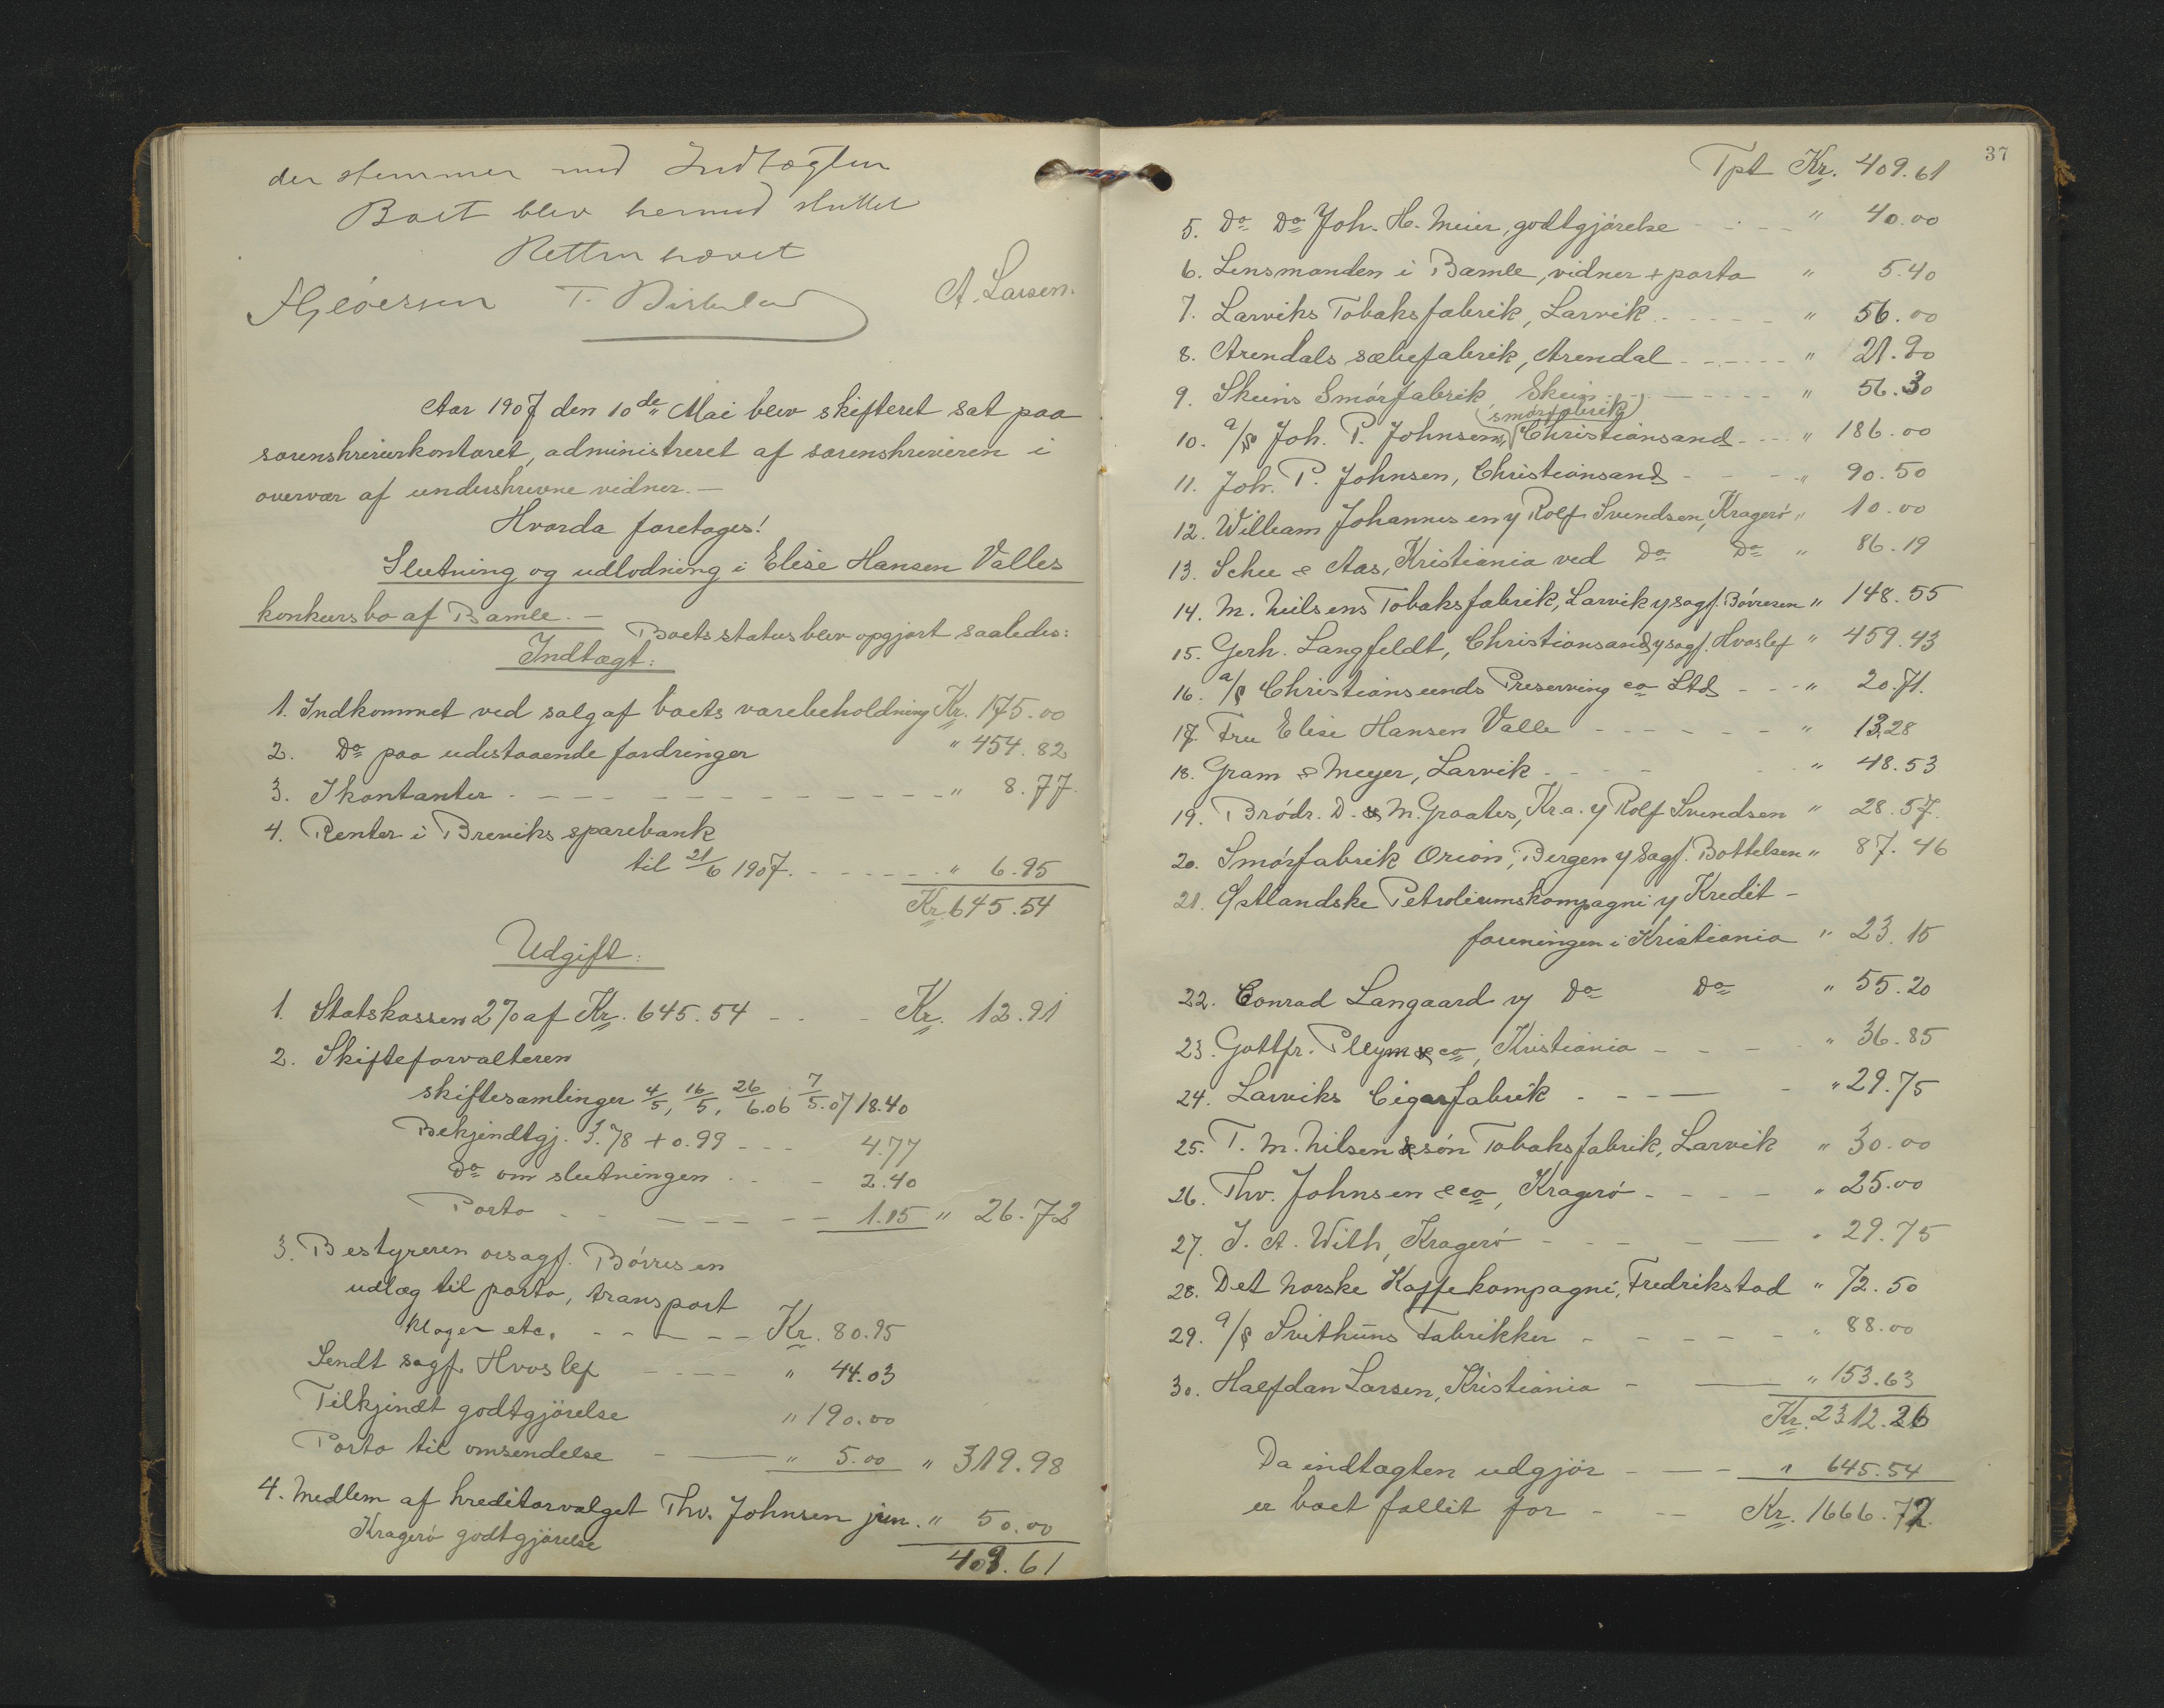 der stemmer med Indtægten
Boet blev hermed sluttet
Retten hævet
A. Larsen.
Aar 1907 den 10de Mai blev skifteret sat paa
sorenskriverkontoret, administreret af sorenskriveren i
overvær af underskrevne vidner. —
Hvorda foretoges!
Slutning og udlodning i Elise Hansen Valles
konkursbo af Bamle. —
Boets status blev opgjort saaledes:
Indtægt:
1. Indkommet ved salg af boets varebeholdning Kr. 175.00
2. Do paa udestaaende fordringer " 454.82
3. I kontanter - - - - " 8.77.
4. Renter i Breviks sparebank
til 21/6 1907. - - - - " 6.95
Kr. 645.54
Udgift:
1. Statskassen 2% af Kr. 645.54 - - - Kr. 12.91
2. Skifteforvalteren
skiftesamlinger 4/5, 16/5, 26/6.06 7/5.07 18.40
Bekjendtgj. 3.78 + 0.99 - - - 4.77
Do om slutningen - - - 2.40
Porto - - - - - 1.15 " 26.72
3. Bestyreren orsagf. Börresen
udlæg til porto, transport
klager etc. - - - - Kr. 80.95
Sendt sagf. Hvoslef - - - - " 44.03
Tilkjendt godtgjörelse " 190.00
Porto til omsendelse - — " 5.00 " 319.98
4. Medlem af kreditorvalget Thv. Johnsen jun. " 50.00
Kragerö godtgjörelse
409.61
37
Tpt Kr. 409.61
5. Do Do Joh. H. Meier, godtgjörelse - - - " 40.00
6. Lensmanden i Bamle, vidner + porto " 5.40
7. Larviks Tobaksfabrik, Larvik - - - - " 56.00
8. Arendals sæbefabrik, Arendal - - - - " 21.90
9. Skeins Smörfabrik, Skein - - - - " 56.30
(smörfabrik)
10. a/s Joh. P. Johnsens, Christiansand - - - " 186.00
11. Joh. P. Johnsen, Christiansand - - - " 90.50
12. William Johannesen y Rolf Svendsen, Kragerö " 10.00
13. Schu & Aas, Kristiania ved Do Do " 86.19
14. M. Nilsens Tobaksfabrik, Larvik y sagf. Börresen " 148.55
15. Gerh. Langfeldt, Christiansand y sagf. Hvoslef " 459.43
16. a/s Christianssunds Preserving co Ltd - - - " 20.71.
17. Fru Elise Hansen Valle - - - - - " 13.28
18. Gram & Meyer, Larvik - - - " 48.53
19. Brödr. D. & M. Graates, Kr.a. y Rolf Svendsen " 28.57.
20. Smörfabrik Orion, Bergen y Sagf. Bottelsen " 87.46
21. Östlandske Petroliumskompagni y Kredit -
foreningen i Kristiania " 23.15
22. Conrad Langaard y Do Do " 55.20
23. Gottfr. Pleym & co, Kristiania - - - - " 36.85
24. Larviks Cigarfabrik - - - — - " 29.75
25. T. M. Nilsen & sön Tobaksfabrik, Larvik " 30.00
26. Thv. Johnsen & co, Kragerö - - - - " 25.00
27. J. A. With, Kragerö - - - - — " 29.75
28. Det Norske Kaffekompagni, Fredrikstad " 72.50
29. a/s Svithuns Fabrikker - - - - - " 88.00
30. Halfdan Larsen, Kristiania - — " 153.63
Kr. 2312.26
Da indtægten udgjör - — - " 645.54
er boet fallit for - — Kr. 1666.72.